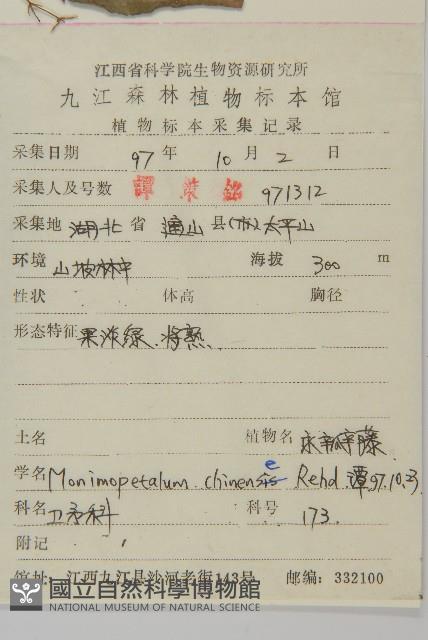 江西省科学院生物资源研究所
九江森林植物标本馆
植物标本采集记录
采集日期 97 年 10 月 2 日
采集人及号数 譚策銘 971312
采集地 湖北 省 通山 县(市) 太平山
环境 山坡林中 海拔 300 m
性状 体高 胸径
形态特征 果淡绿.将熟.
土名 植物名 永瓣藤
学名 Monimopetalum chinense Rehd. 谭97.10.23
科名 卫矛科 科号 173.
附记
馆址:江西九江县沙河老街143号 邮编:332100
國立自然科學博物館
NATIONAL MUSEUM OF NATURAL SCIENCE